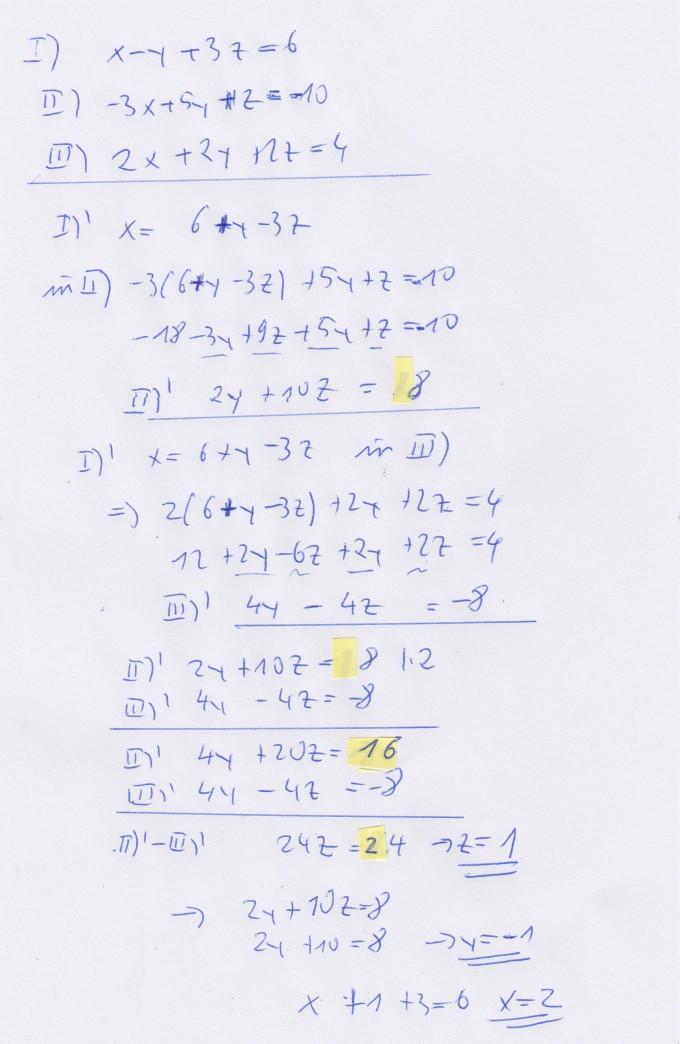 I) x-y+3z=6
II) -3x+5y+z=-10
III) 2x+2y+2z=4
I)' x= 6+y-3z
in II) -3(6+y-3z)+5y+z=-10
-18-3y+9z+5y+z=-10
II)' 2y+10z = 8
I)' x=6+y-3z in III)
=> 2(6+y-3z)+2y+2z=4
12+2y-6z+2y+2z=4
III)' 4y - 4z = -8
II)' 2y+10z= 8 |·2
III)' 4y - 4z=-8
II)' 4y +20z= 16
III)' 4y - 4z =-8
II)'-III)' 24z =24 → z=1
→ 2y+10z=8
2y+10=8 → y=-1
x +1 +3=6 x=2